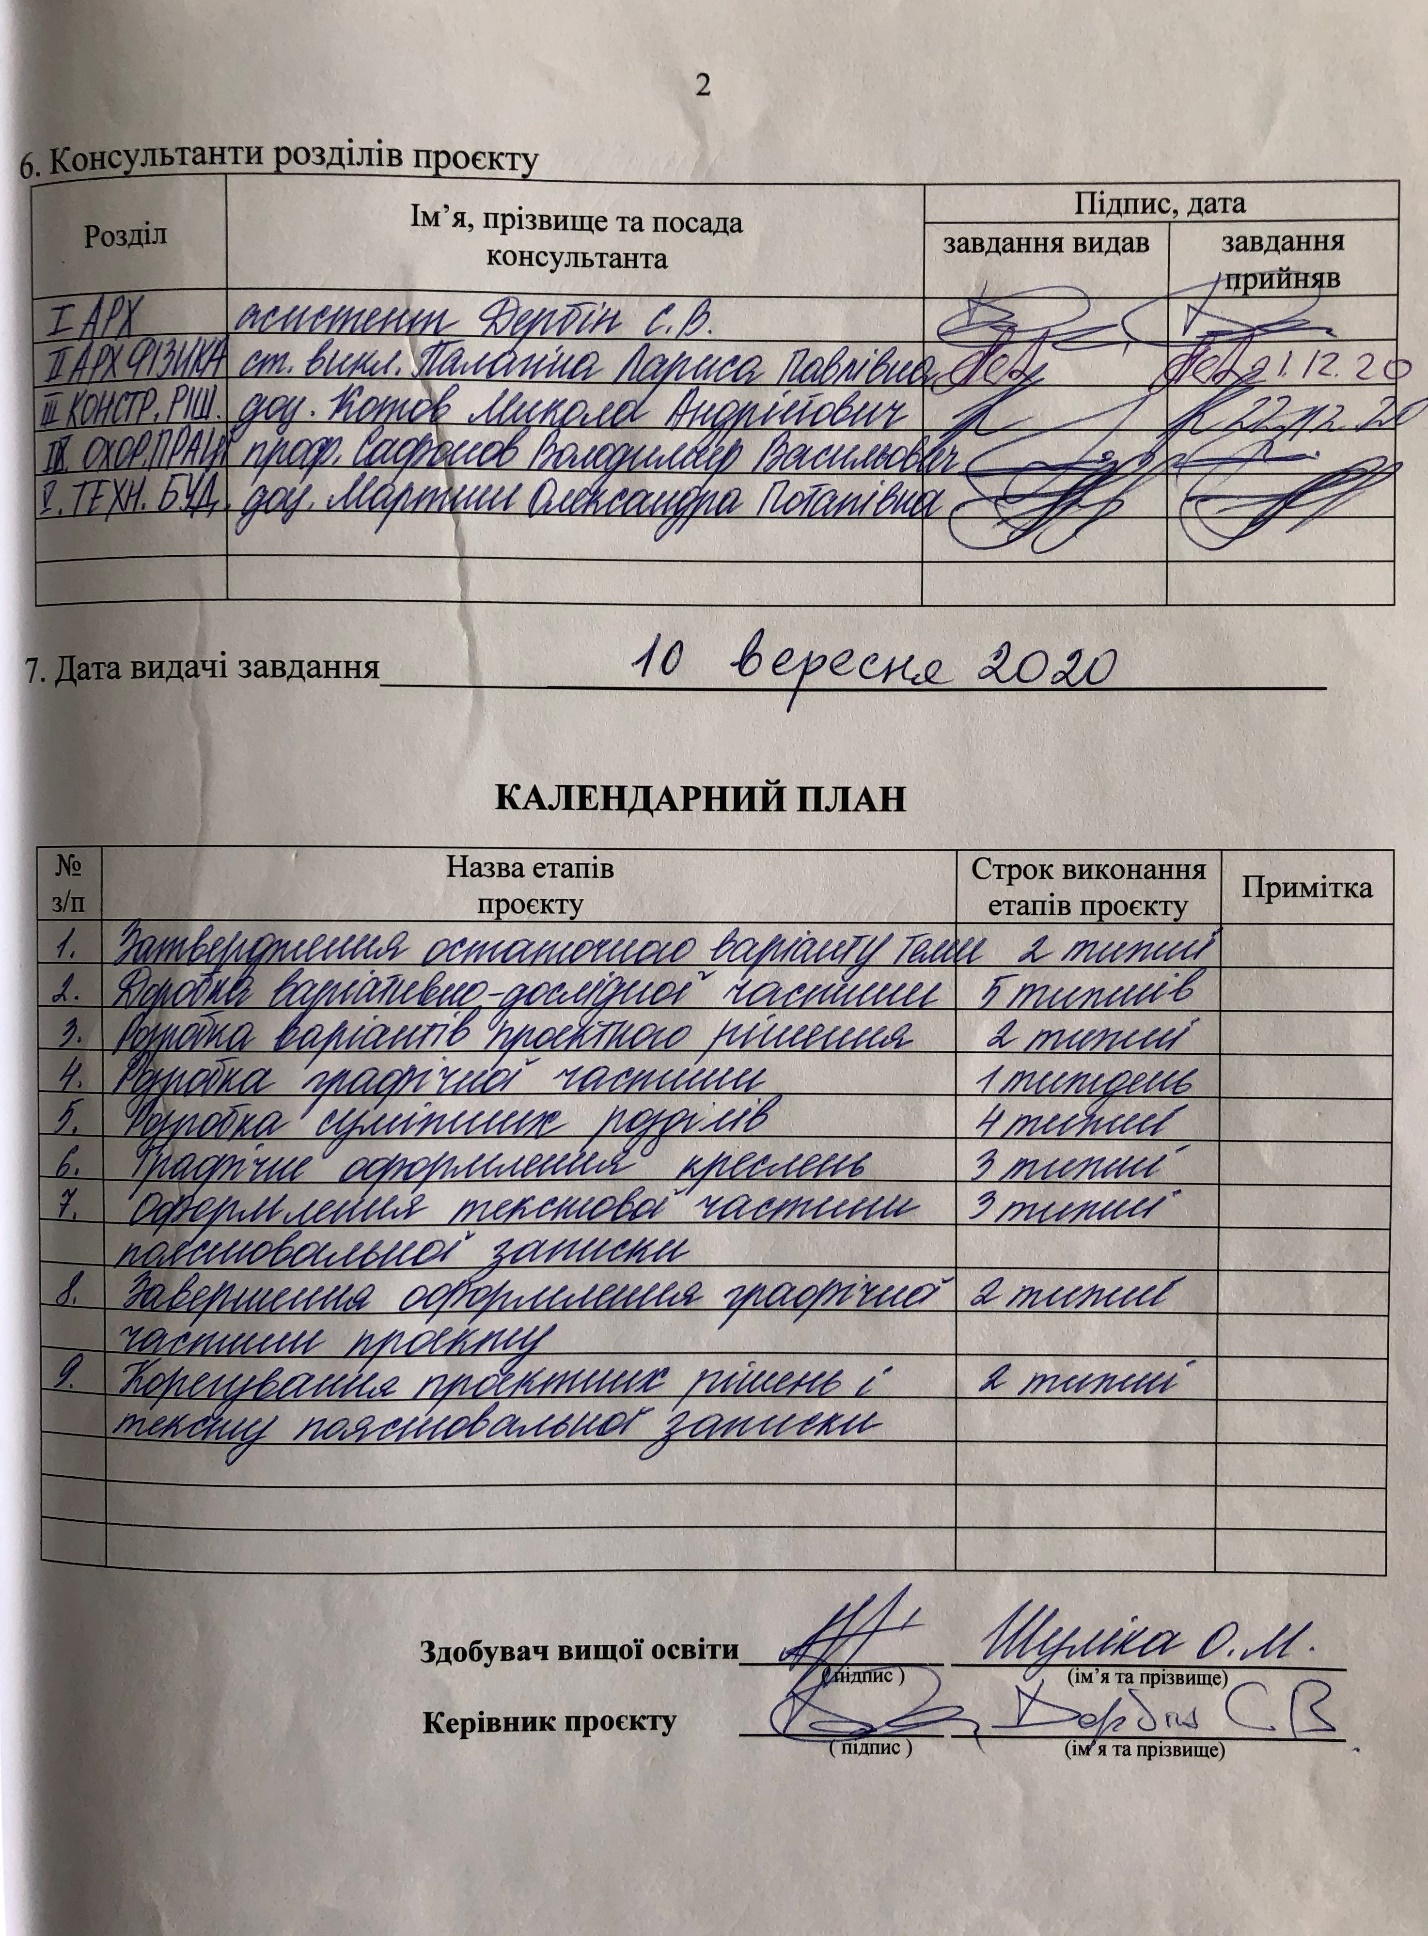 2
6. Консультанти розділів проєкту
Розділ Ім’я, прізвище та посада консультанта Підпис, дата
завдання видав завдання прийняв
I АРХ асистент Дербін С.В.
II АРХ ФІЗИКА ст. викл. Лариса Павлівна 1.12.20
III КОНСТР. РІШ. доц. Котов Микола Андрійович 22.12.20
IV. ОХОР.ПРАЦІ проф. Сафонов Володимир Васильович
V. ТЕХН. БУД. доц. Мартиш Олександра Потапівна
7. Дата видачі завдання 10 вересня 2020
КАЛЕНДАРНИЙ ПЛАН
№ з/п Назва етапів проєкту Строк виконання етапів проєкту Примітка
1. Затвердження остаточного варіанту теми 2 тижні
2. Доробка варіативно-дослідної частини 5 тижнів
3. Розробка варіантів проєктного рішення 2 тижні
4. Розробка графічної частини 1 тиждень
5. Розробка суміжних розділів 4 тижні
6. Графічне оформлення креслень 3 тижні
7. Оформлення текстової частини 3 тижні
пояснювальної записки
8. Завершення оформлення графічної 2 тижні
частини проєкту
9. Корегування проєктних рішень і 2 тижні
тексту пояснювальної записки
Здобувач вищої освіти Шуліка О.М.
( підпис ) (ім’я та прізвище)
Керівник проєкту Дербін С В
( підпис ) (ім’я та прізвище)